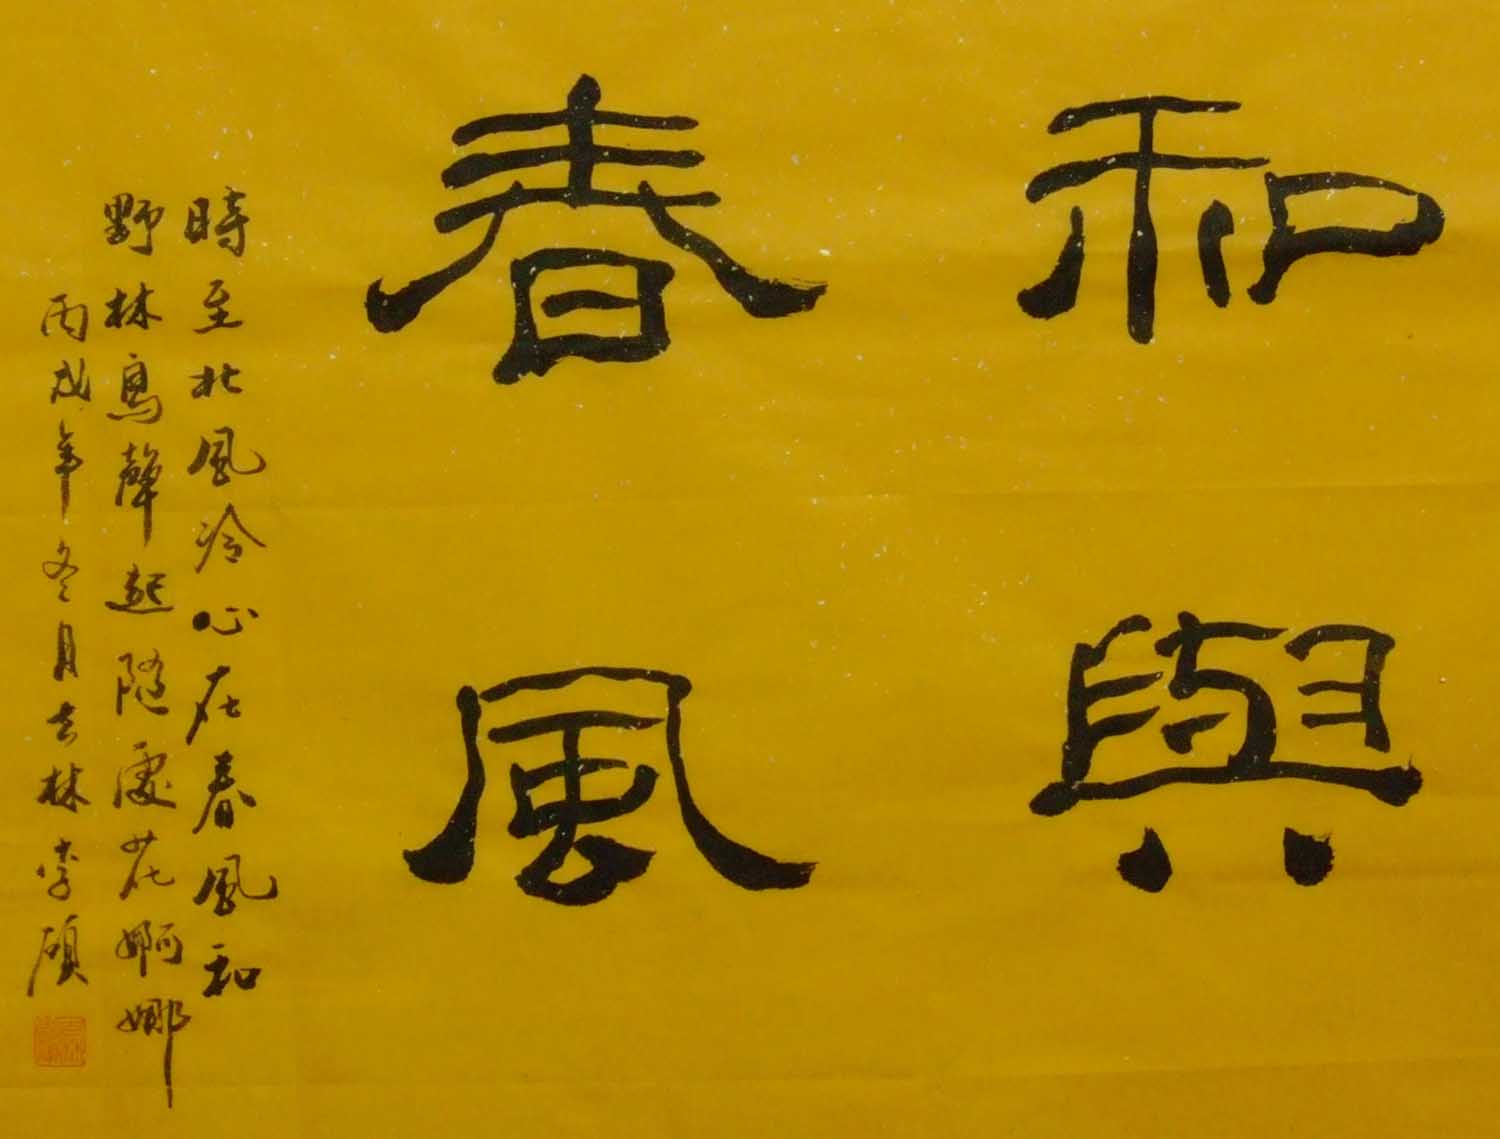 和與
春風
時至北風冷心在春風和
野林鳥聲起隨處花婀娜
丙戌年冬月吉林李碩